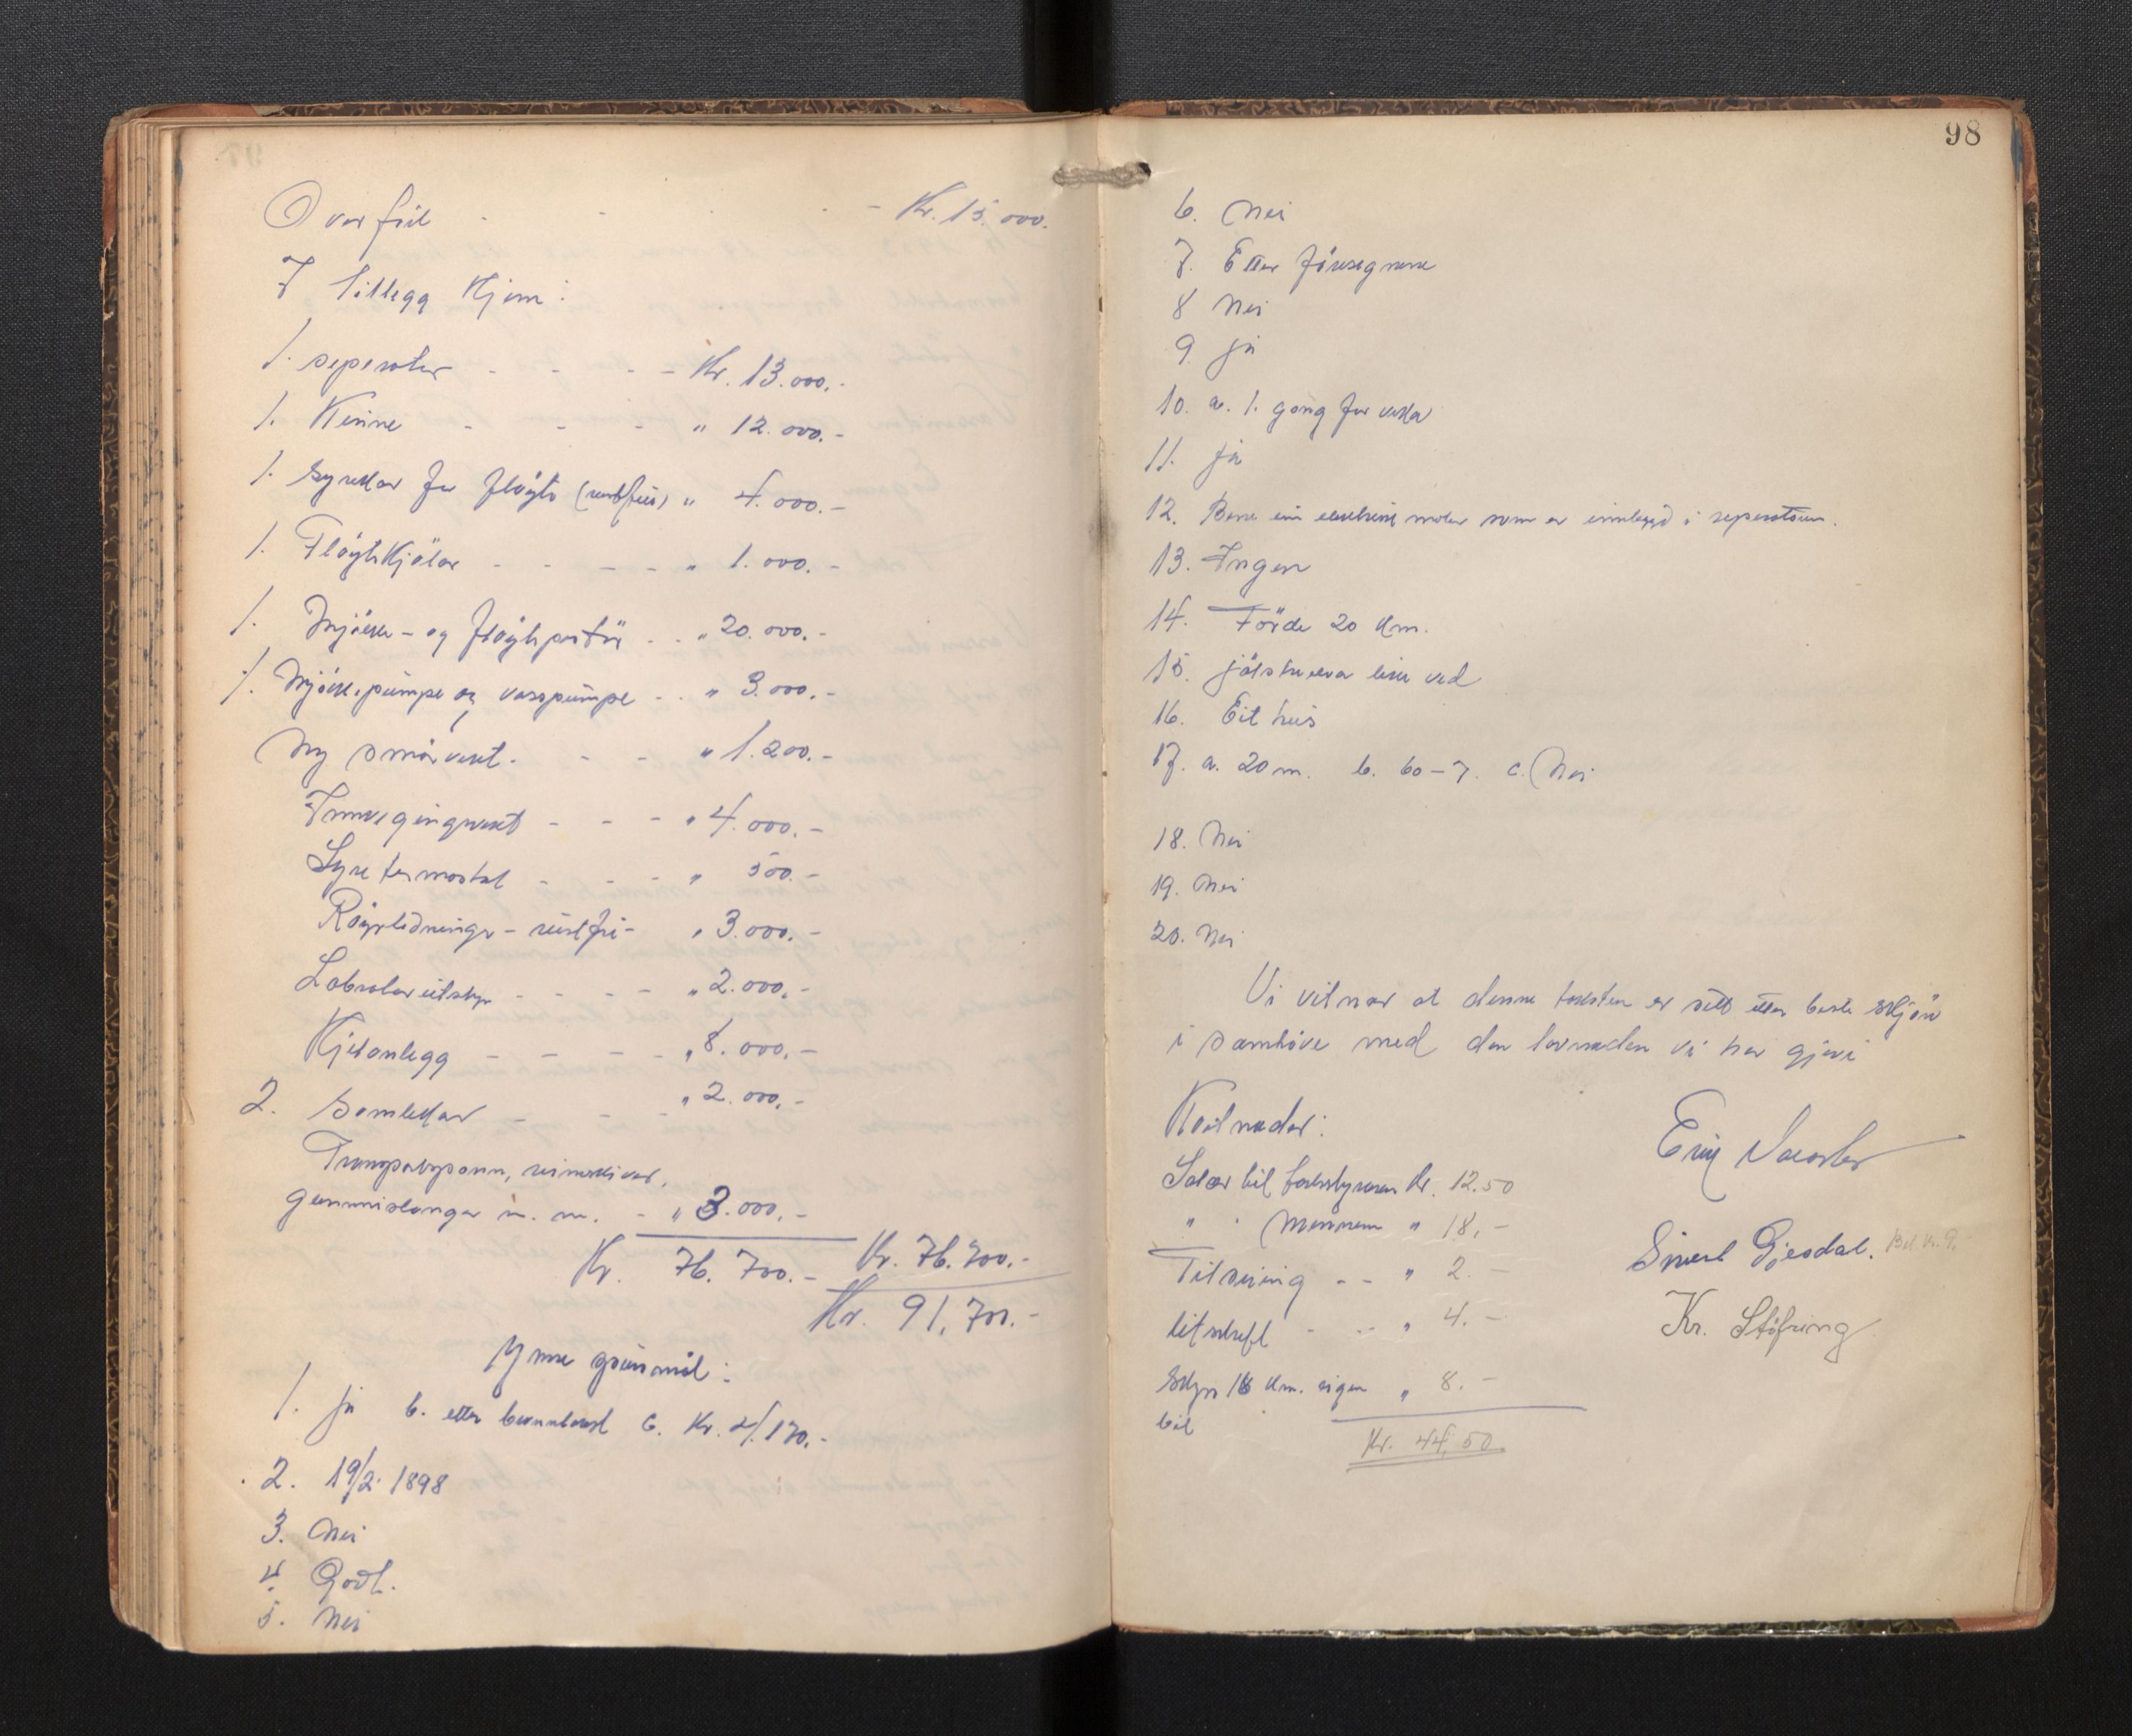 Overført - - - - Kr. 15.000.
I tillegg kjem:
1. seperator - - - - Kr. 13.000.-
1. Kinne - - - " 12.000.-
1. syrekar for fløyte (rustfrie) " 4.000.-
1. Fløytekjølar - - - - " 1.000.-
1. Mjølke- og fløytepastør - - " 20.000.-
1. Mjølkepumpe og vasspumpe - - " 3.000.-
Ny smørvekt. - - " 1.200.-
Innvegingsvekt - - - " 4.000.-
Syretermostat - - - " 500.-
Røyrledninger - rustfri - " 3.000.-
Laboratorieutstyr - - - - " 2.000.-
Kjelanlegg - - - - " 8.000.-
2. Samlekar - - - " 2.000.-
Transportspann, reimskiver,
gummislangar m. m. - " 3.000.-
Kr. 76.700.- Kr. 76.700.-
Kr. 91.700.-
Ymse spursmål:
1. Ja b. etter C. Kr. 4.170.-
2. 19/2. 1898
3. Nei
4. Godt.
5. Nei
98
6. Nei
7. Etter føresegnene
8 Nei
9. Ja
10. a. 1. gong for veka
11. Ja
12. Berre ein elektrisk motor som er innebygd i seperatoren.
13. Ingen
14. Førde 20 km.
15. Jølstraelva like ved
16. Eit hus
17. a. 20 m. b. 60-7. c. Nei
18. Nei
19. Nei
20. Nei
Vi vitnar at denne taksten er sett etter beste skjøn
i samhøve med den lovnaden vi har gjevi
Kostnader:
Salær til takststyraren Kr. 12.50
" " Mennene " 18.-
Tilseiing - - " 2.-
Utskrift - - - " 4.-
Skyss 16 km. eigen " 8.-
bil
Kr. 44,50
Sivert Gjesdal.
Kr. Støfring